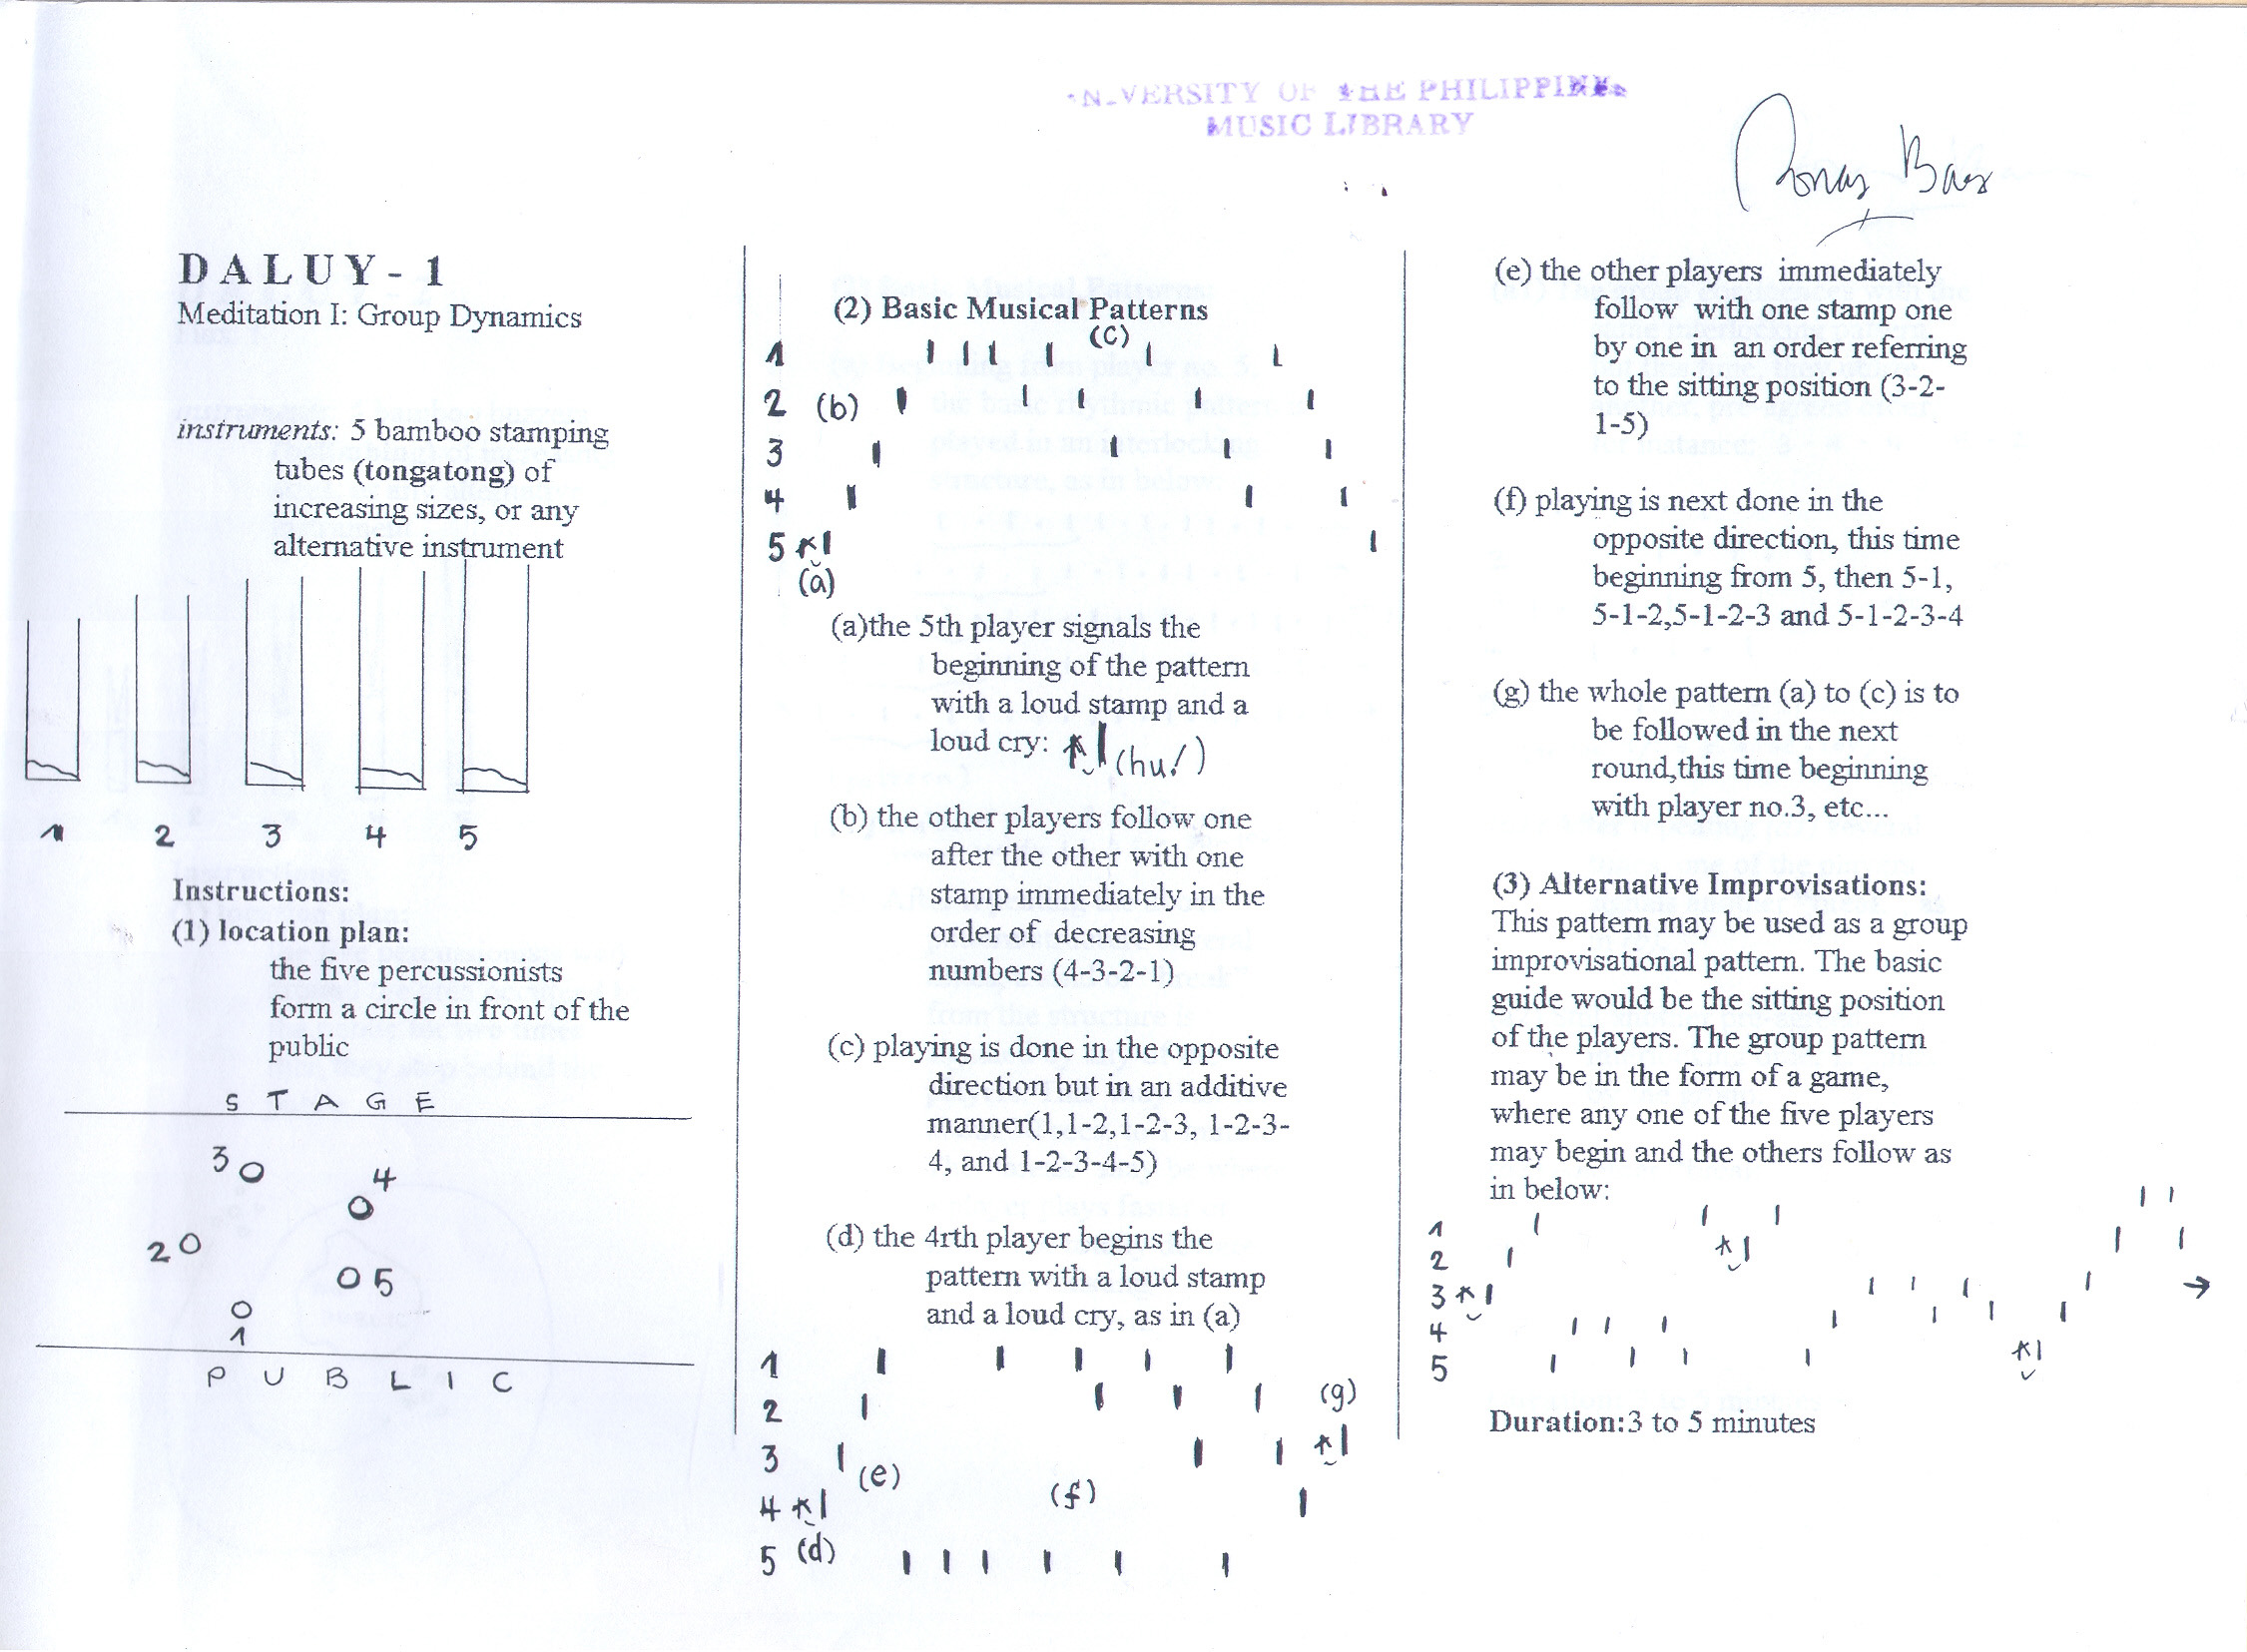 UNIVERSITY OF THE PHILIPPINES
MUSIC LIBRARY
Jonas Baes
DALUY - 1
Meditation I: Group Dynamics
instruments: 5 bamboo stamping
tubes (tongatong) of
increasing sizes, or any
alternative instrument
1 2 3 4 5
Instructions:
(1) location plan:
the five percussionists
form a circle in front of the
public
STAGE
3
4
2
5
1
PUBLIC
(2) Basic Musical Patterns
(c)
1
2 (b)
3
4
5
(a)
(a)the 5th player signals the
beginning of the pattern
with a loud stamp and a
loud cry: (hu!)
(b) the other players follow one
after the other with one
stamp immediately in the
order of decreasing
numbers (4-3-2-1)
(c) playing is done in the opposite
direction but in an additive
manner(1,1-2,1-2-3, 1-2-3-
4, and 1-2-3-4-5)
(d) the 4rth player begins the
pattern with a loud stamp
and a loud cry, as in (a)
1
2 (g)
3 (e)
4 (f)
5 (d)
(e) the other players immediately
follow with one stamp one
by one in an order referring
to the sitting position (3-2-
1-5)
(f) playing is next done in the
opposite direction, this time
beginning from 5, then 5-1,
5-1-2,5-1-2-3 and 5-1-2-3-4
(g) the whole pattern (a) to (c) is to
be followed in the next
round,this time beginning
with player no.3, etc...
(3) Alternative Improvisations:
This pattern may be used as a group
improvisational pattern. The basic
guide would be the sitting position
of the players. The group pattern
may be in the form of a game,
where any one of the five players
may begin and the others follow as
in below:
1
2
3
4
5
Duration:3 to 5 minutes